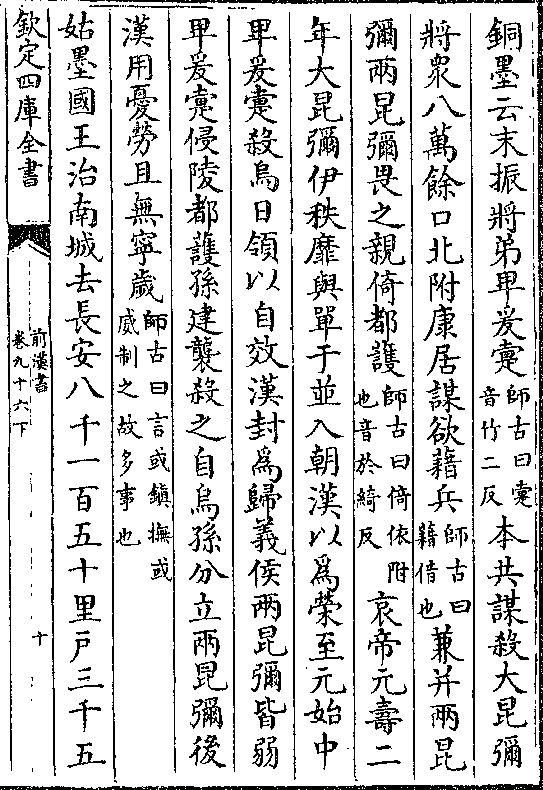 銅墨云末振將弟卑爰疐師古曰疐音竹二反本共謀殺大昆彌
將衆八萬餘口北附康居謀欲藉兵師古曰藉借也兼并兩昆
彌兩昆彌畏之親倚都護師古曰倚依附也音於綺反哀帝元壽二
年大昆彌伊秩靡與單于並入朝漢以為榮至元始中
卑爰疐殺烏日領以自效漢封為歸義侯兩昆彌皆弱
卑爰疐侵陵都護孫建襲殺之自烏孫分立兩昆彌後
漢用憂勞且無寧歲師古曰言或鎮撫或威制之故多事也
姑墨國王治南城去長安八千一百五十里戸三千五
欽定四庫全書
前漢書
卷九十六下
十